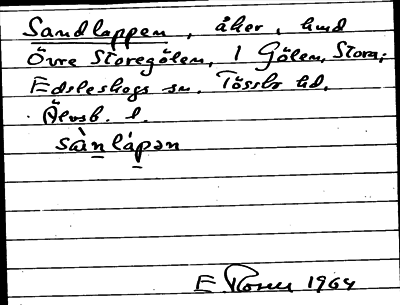 Sandlappen, åker, hmd
Övre Storegölen, 1 Gölen, Stora;
Edsleskogs sn. Tössbo hd.
Älvsb. l.
sànlápən
E Rosen 1964